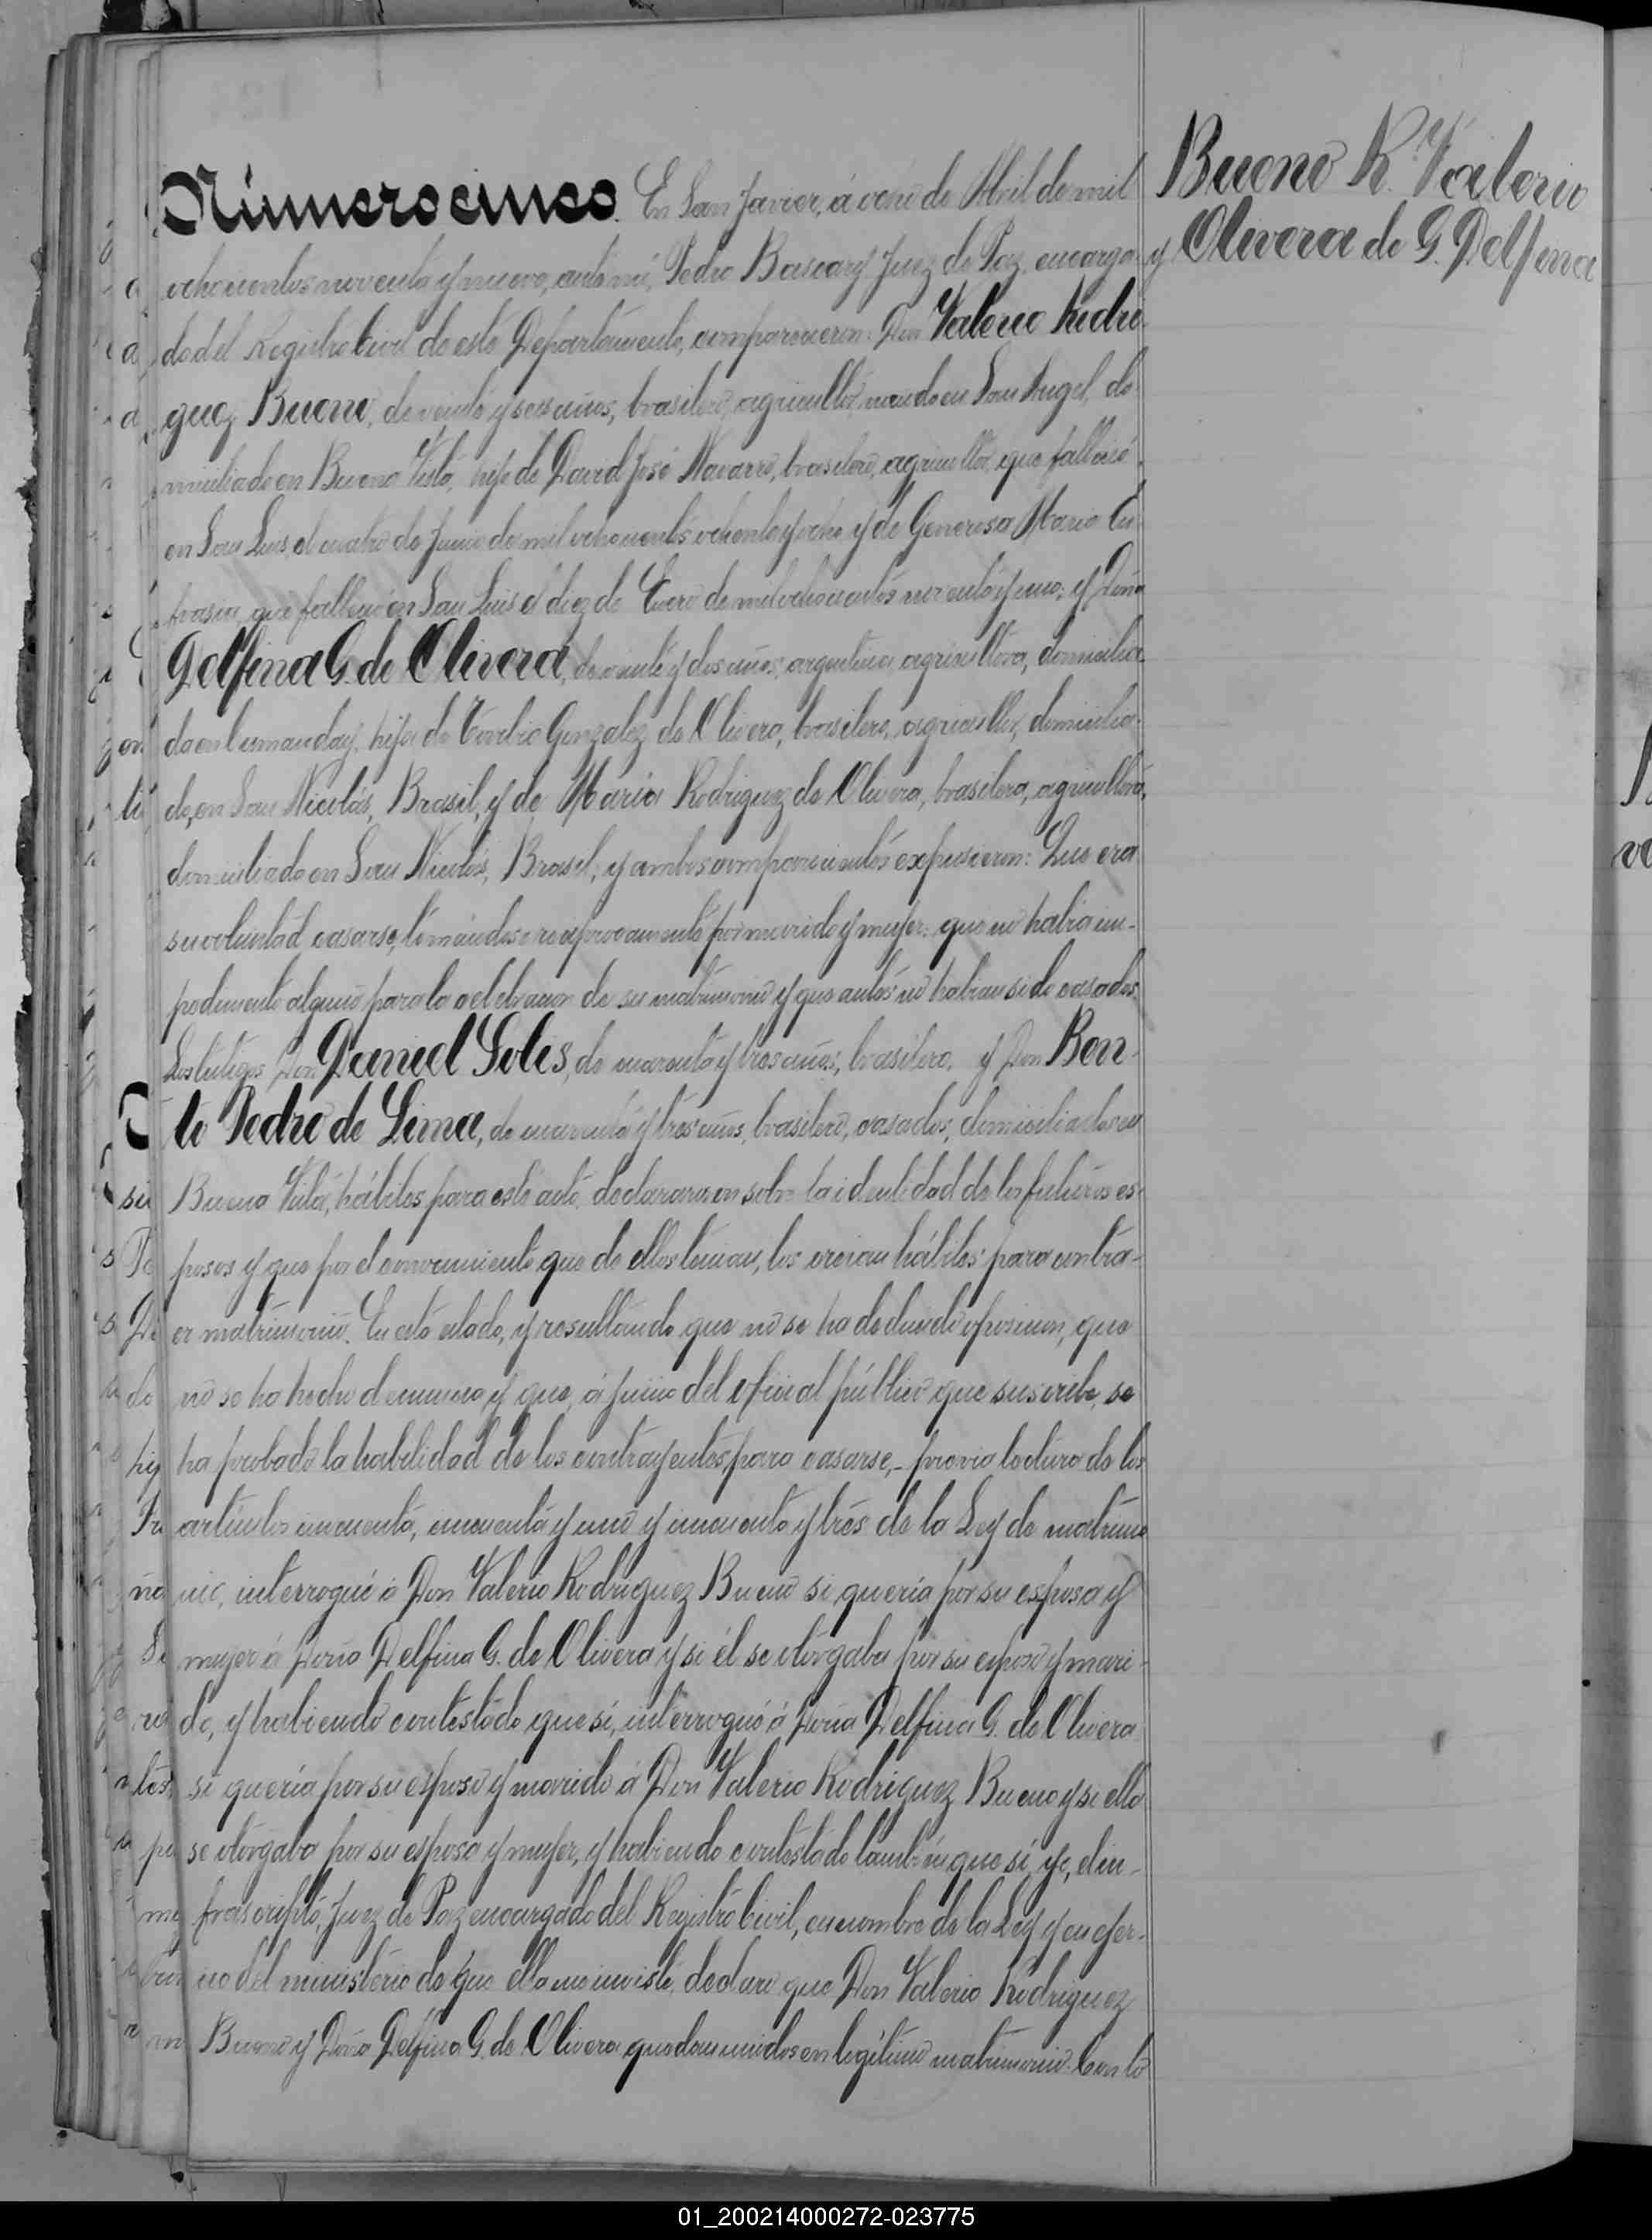 Número cinco. En San Javier, á ocho de Abril de mil
ochocientos noventa y nueve, ante mí, Pedro Bascary Juez de Paz, encarga-
do del Registro Civil de este Departamento, comparecieron: Don Valerio Rodri-
guez Bueno, de veinte y seis años, brasilero, agricultor, nacido en San Angel, do-
miciliado en Buena Vista, hijo de David José Navarro, brasilero, agricultor, que falleció
en San Luis, el cuatro de Junio de mil ochocientos ochenta y ocho y de Generosa Maria Eu-
frasia, que falleció en San Luis el diez de Enero de mil ochocientos noventa y uno; y Doña
Delfina G. de Olivera, de veinte y dos años, argentina, agricultora, domicilia-
da en hija de Toribio Gonzalez de Olivera, brasilero, agricultor, domicilia-
do, en San Nicolás, Brasil, y de Maria Rodriguez de Olivera, brasilera, agricultora,
domiciliada en San Nicolás, Brasil, y ambos comparecientes expusieron: Que era
su voluntad casarse, tomándose reciprocamente por marido y mujer: que no habia im-
pedimento alguno para la celebracion de su matrimonio y que antes no habian sido casados.
Los testigos Don Daniel Soles, de cuarenta y tres años, brasilero, y Don Ben-
to Pedro de Lima, de cuarenta y tres años, brasilero, casados, domiciliados en
Buena Vista, hábiles para este acto, declararon sobre la identidad de los futuros es-
posos y que por el conocimiento que de ellos tenian, los creian hábiles para contra-
er matrimonio. En este estado, y resultando que no se ha deducido oposicion, que
no se ha hecho denuncia y que, á juicio del oficial público que suscribe, se
ha probado la habilidad de los contrayentes para casarse,- previa lectura de los
articulos cincuenta, cincuenta y uno y cincuenta y tres de la Ley de matrimo
nio, interrogué á Don Valerio Rodriguez Bueno si queria por su esposa y
mujer á Doña Delfina G. de Olivera y si él se otorgaba por su esposo y mari-
do, y habiendo contestado que sí, interrogué á Doña Delfina G. de Olivera
si queria por su esposo y marido á Don Valerio Rodriguez Bueno y si ella
se otorgaba por su esposa y mujer, y habiendo contestado tambien que sí, yo, el in-
frascripto, Juez de Paz encargado del Registro Civil, en nombre de la Ley y en ejer-
cicio del ministerio de que ella me inviste, declaro que Don Valerio Rodriguez
Bueno y Doña Delfina G. de Olivera quedan unidos en legítimo matrimonio. Con lo
Bueno R. Valerio
y Olivera de G. Delfina
01_200214000272-023775